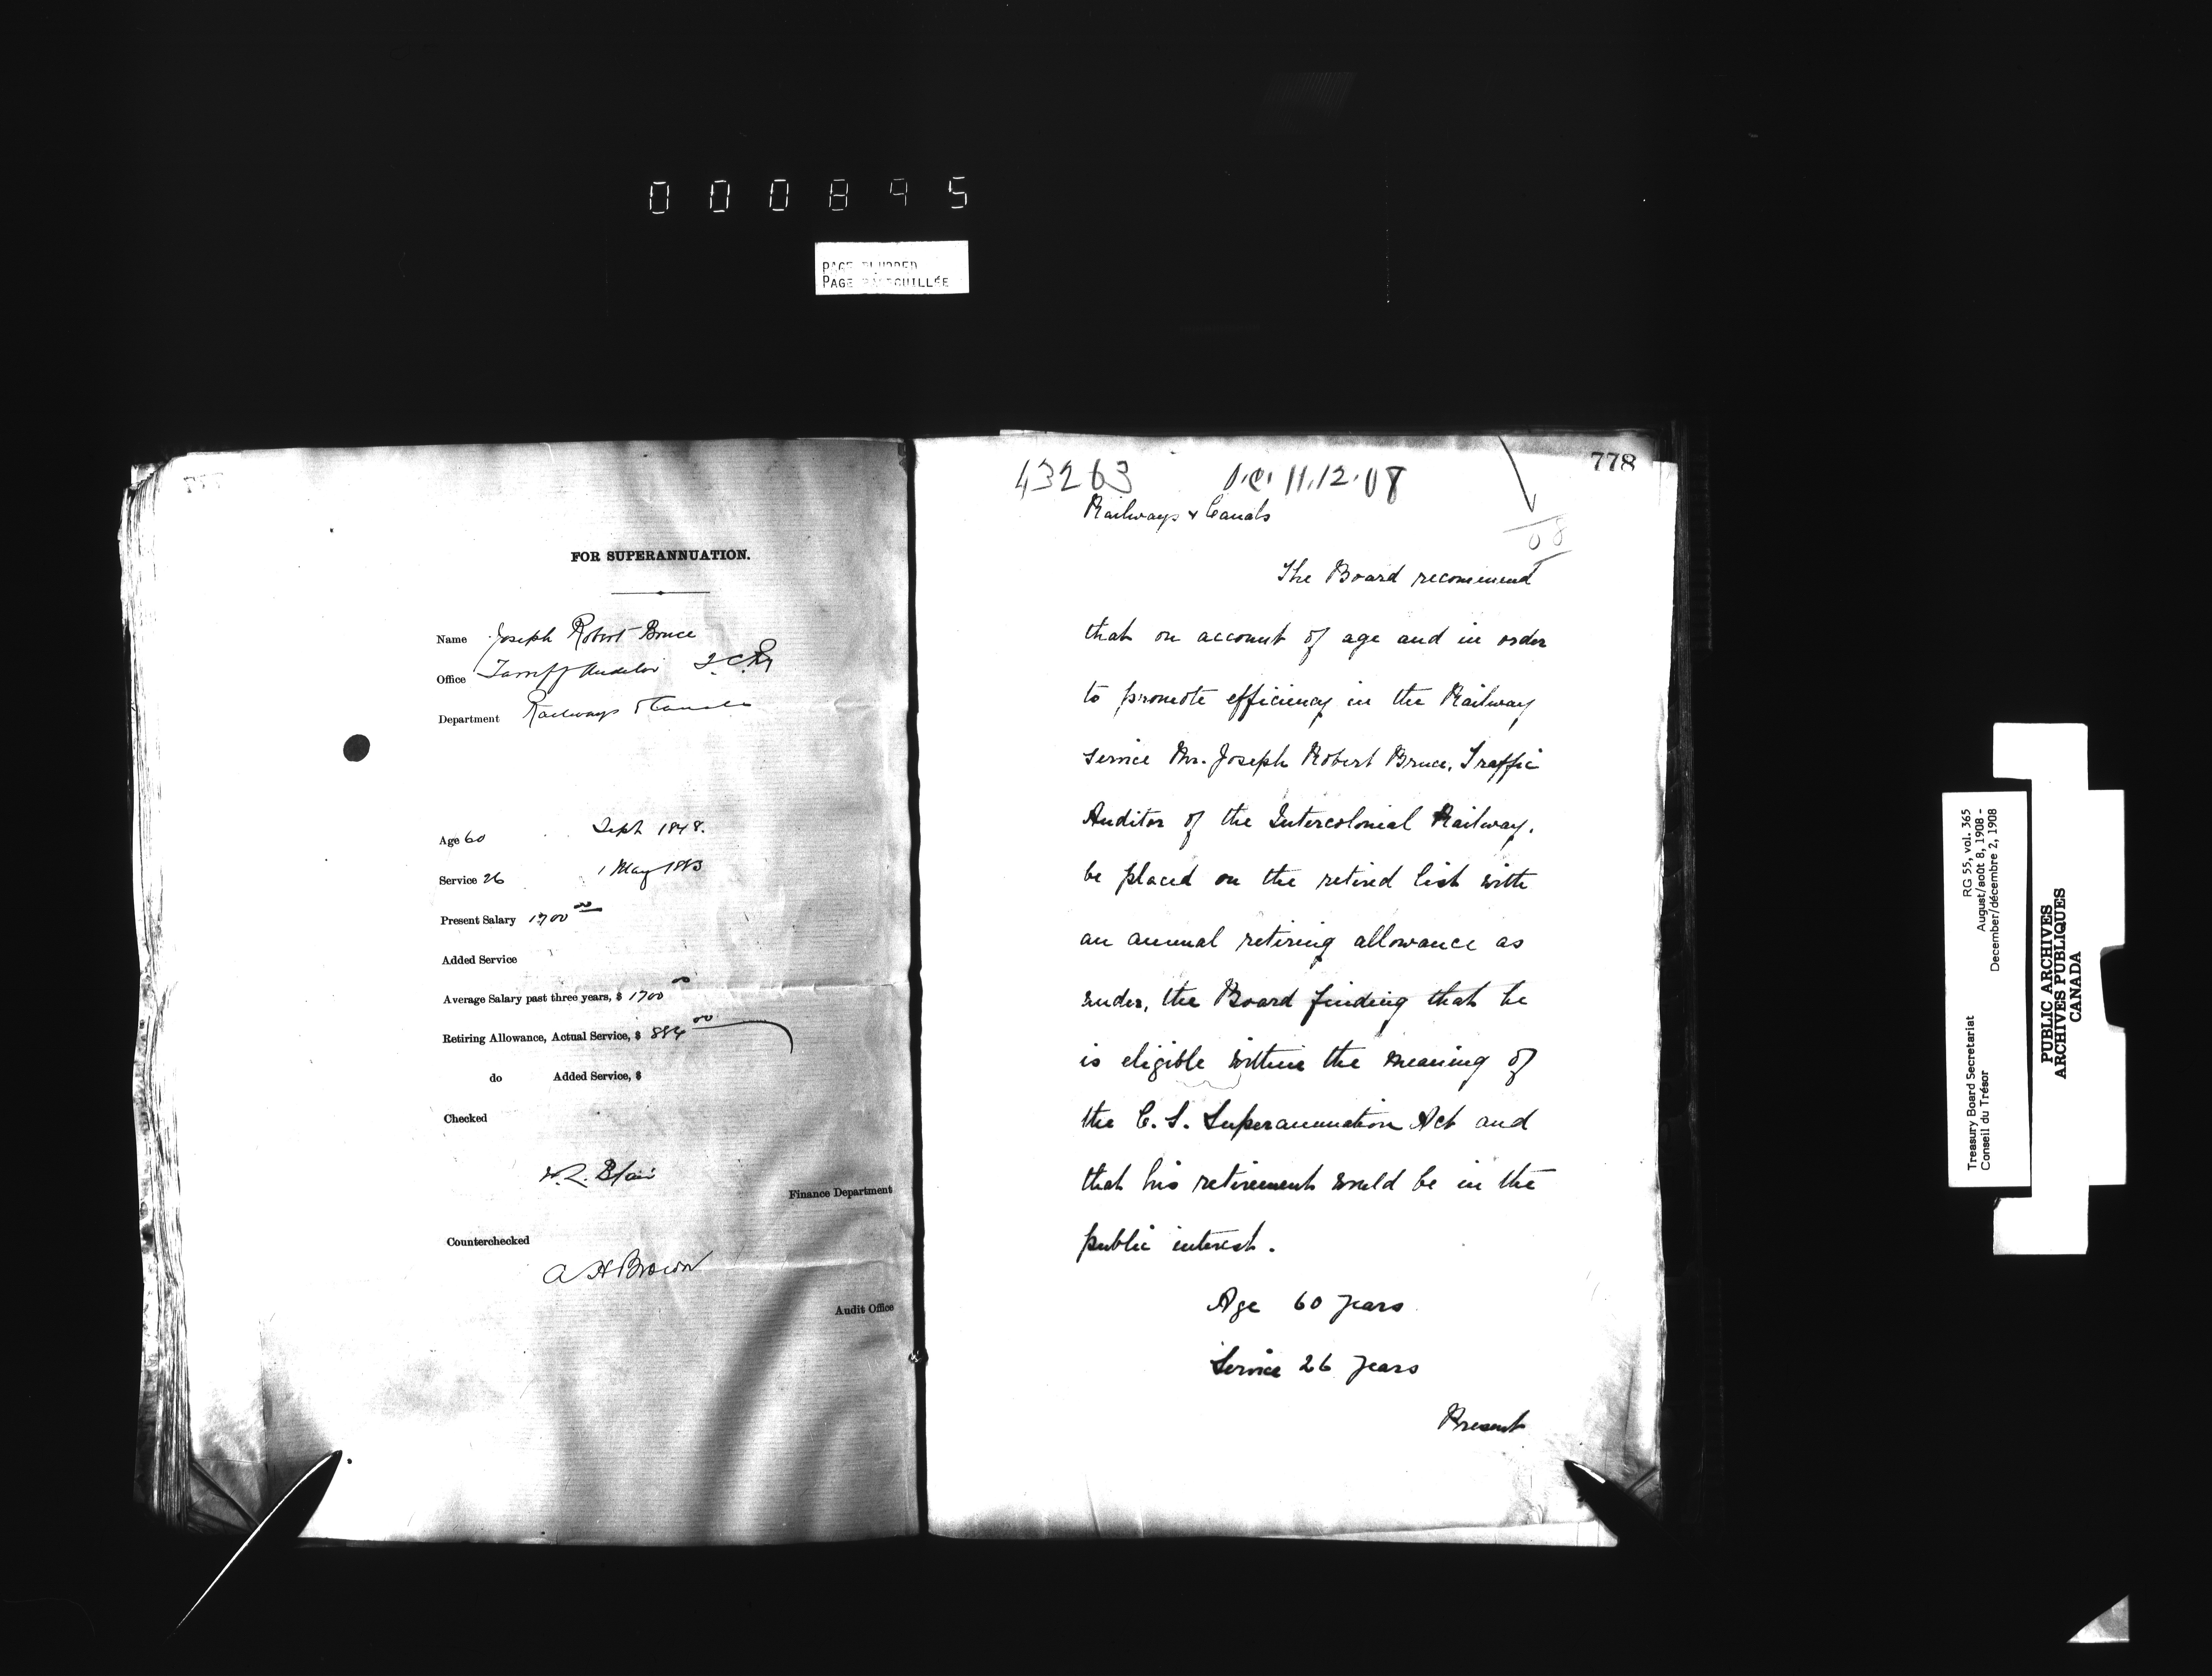 000895
PAGE BLURRED
PAGE BARBOUILLÉE
777
FOR SUPERANNUATION.
Name Joseph Robert Bruce
Office Traffic Auditor I.C.Ry
Department Railways & Canals
Age 60 Sept 1848.
Service 26 1 May 1883
Present Salary 1700 00
Added Service
Average Salary past three years, $ 1700 00
Retiring Allowance, Actual Service, $ 884 00
do Added Service, $
Checked
Blair
Finance Department
Counterchecked
A H Brown
Audit Office
778
43263 O.C. 11.12.08
Railways & Canals
08
The Board recommend
that on account of age and in order
to promote efficiency in the Railway
service Mr. Joseph Robert Bruce, Traffic
Auditor of the Intercolonial Railway,
be placed on the retired list with
an annual retiring allowance as
under, the Board finding that he
is eligible within the meaning of
the C. S. Superannuation Act and
that his retirement would be in the
public interest.
Age 60 years
Service 26 years
Present
Treasury Board Secretariat RG 55, vol. 365
Conseil du Trésor August/août 8, 1908 -
December/décembre 2, 1908
PUBLIC ARCHIVES
ARCHIVES PUBLIQUES
CANADA